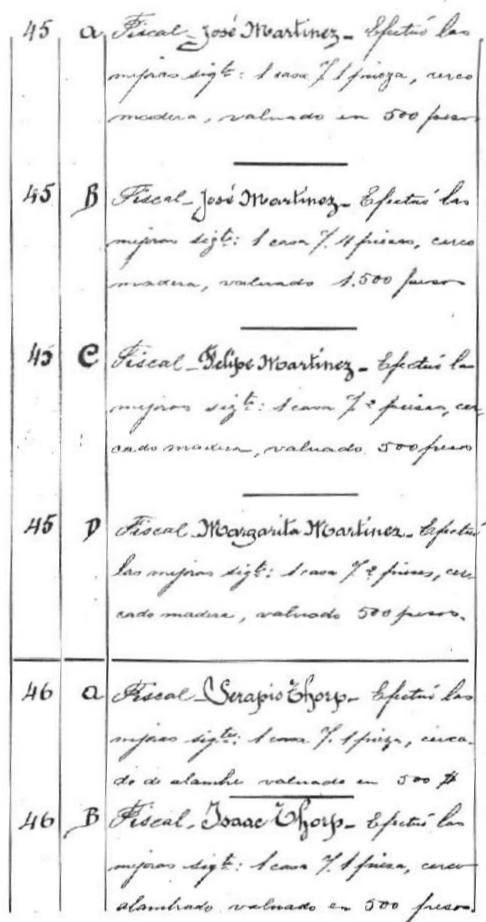 45 a Fiscal - José Martinez - Efectuó las
mejoras sigte: 1 casa 7. 1 pieza, cerco
madera, valuado en 500 pesos
45 B Fiscal - José Martinez - Efectuó las
mejoras sigte: 1 casa 7. 4 piezas, cerco
madera, valuado 1.500 pesos
45 C Fiscal - Felipe Martínez - Efectuó las
mejoras sigte: 1 casa 7. 2 piezas, cer-
cado madera, valuado 500 pesos
45 D Fiscal - Margarita Martinez - Efectuó
las mejoras sigte: 1 casa 7. 2 piezas, cer-
cado madera, valuado 500 pesos.
46 a Fiscal - Serapio Thorp - Efectuó las
mejoras sigte: 1 casa 7. 1 pieza, cerca-
do de alambre valuado en 500 $
46 B Fiscal - Isaac Thorp - Efectuó las
mejoras sigte: 1 casa 7. 1 pieza, cerco
alambrado valuado en 500 pesos.